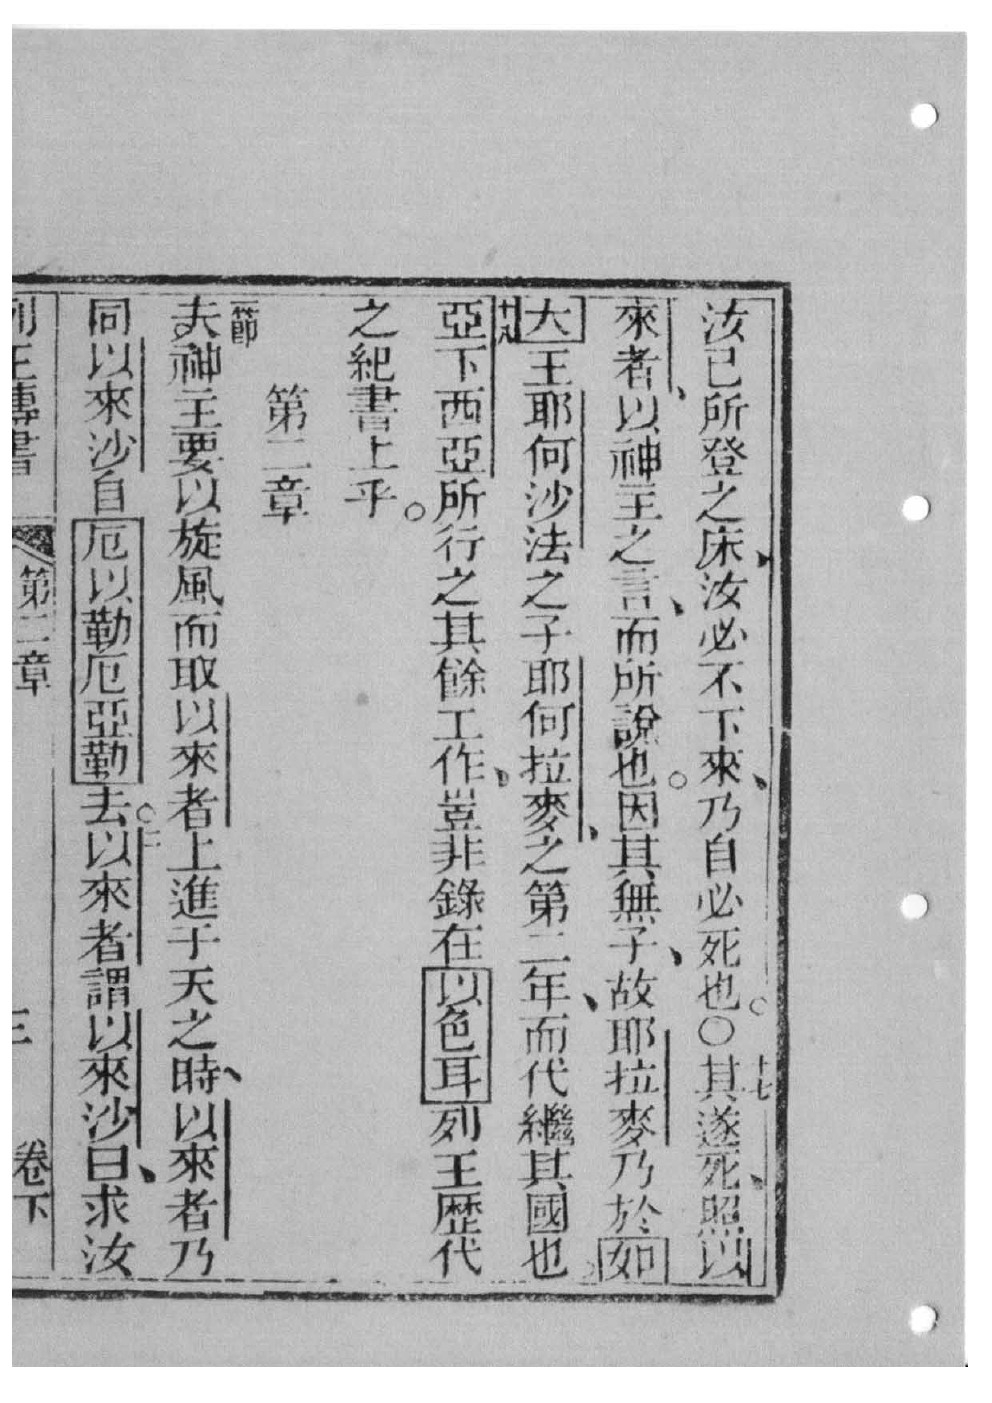 汝已所登之床、汝必不下來、乃自必死也。〇十七其遂死、照以
來者、以神主之言、而所說也。因其無子、故耶拉麥乃於如
大王耶何沙法之子耶何拉麥、之第二年、而代繼其國也。
十八亞下西亞所行之其餘工作、豈非錄在以色耳列王歷代
之紀書上乎。
第二章
一節夫神主要以旋風而取以來者上進于天之時、以來者乃
同以來沙自厄以勒厄亞勒去。二以來者謂以來沙曰、求汝
列王傳書 第二章 三 卷下